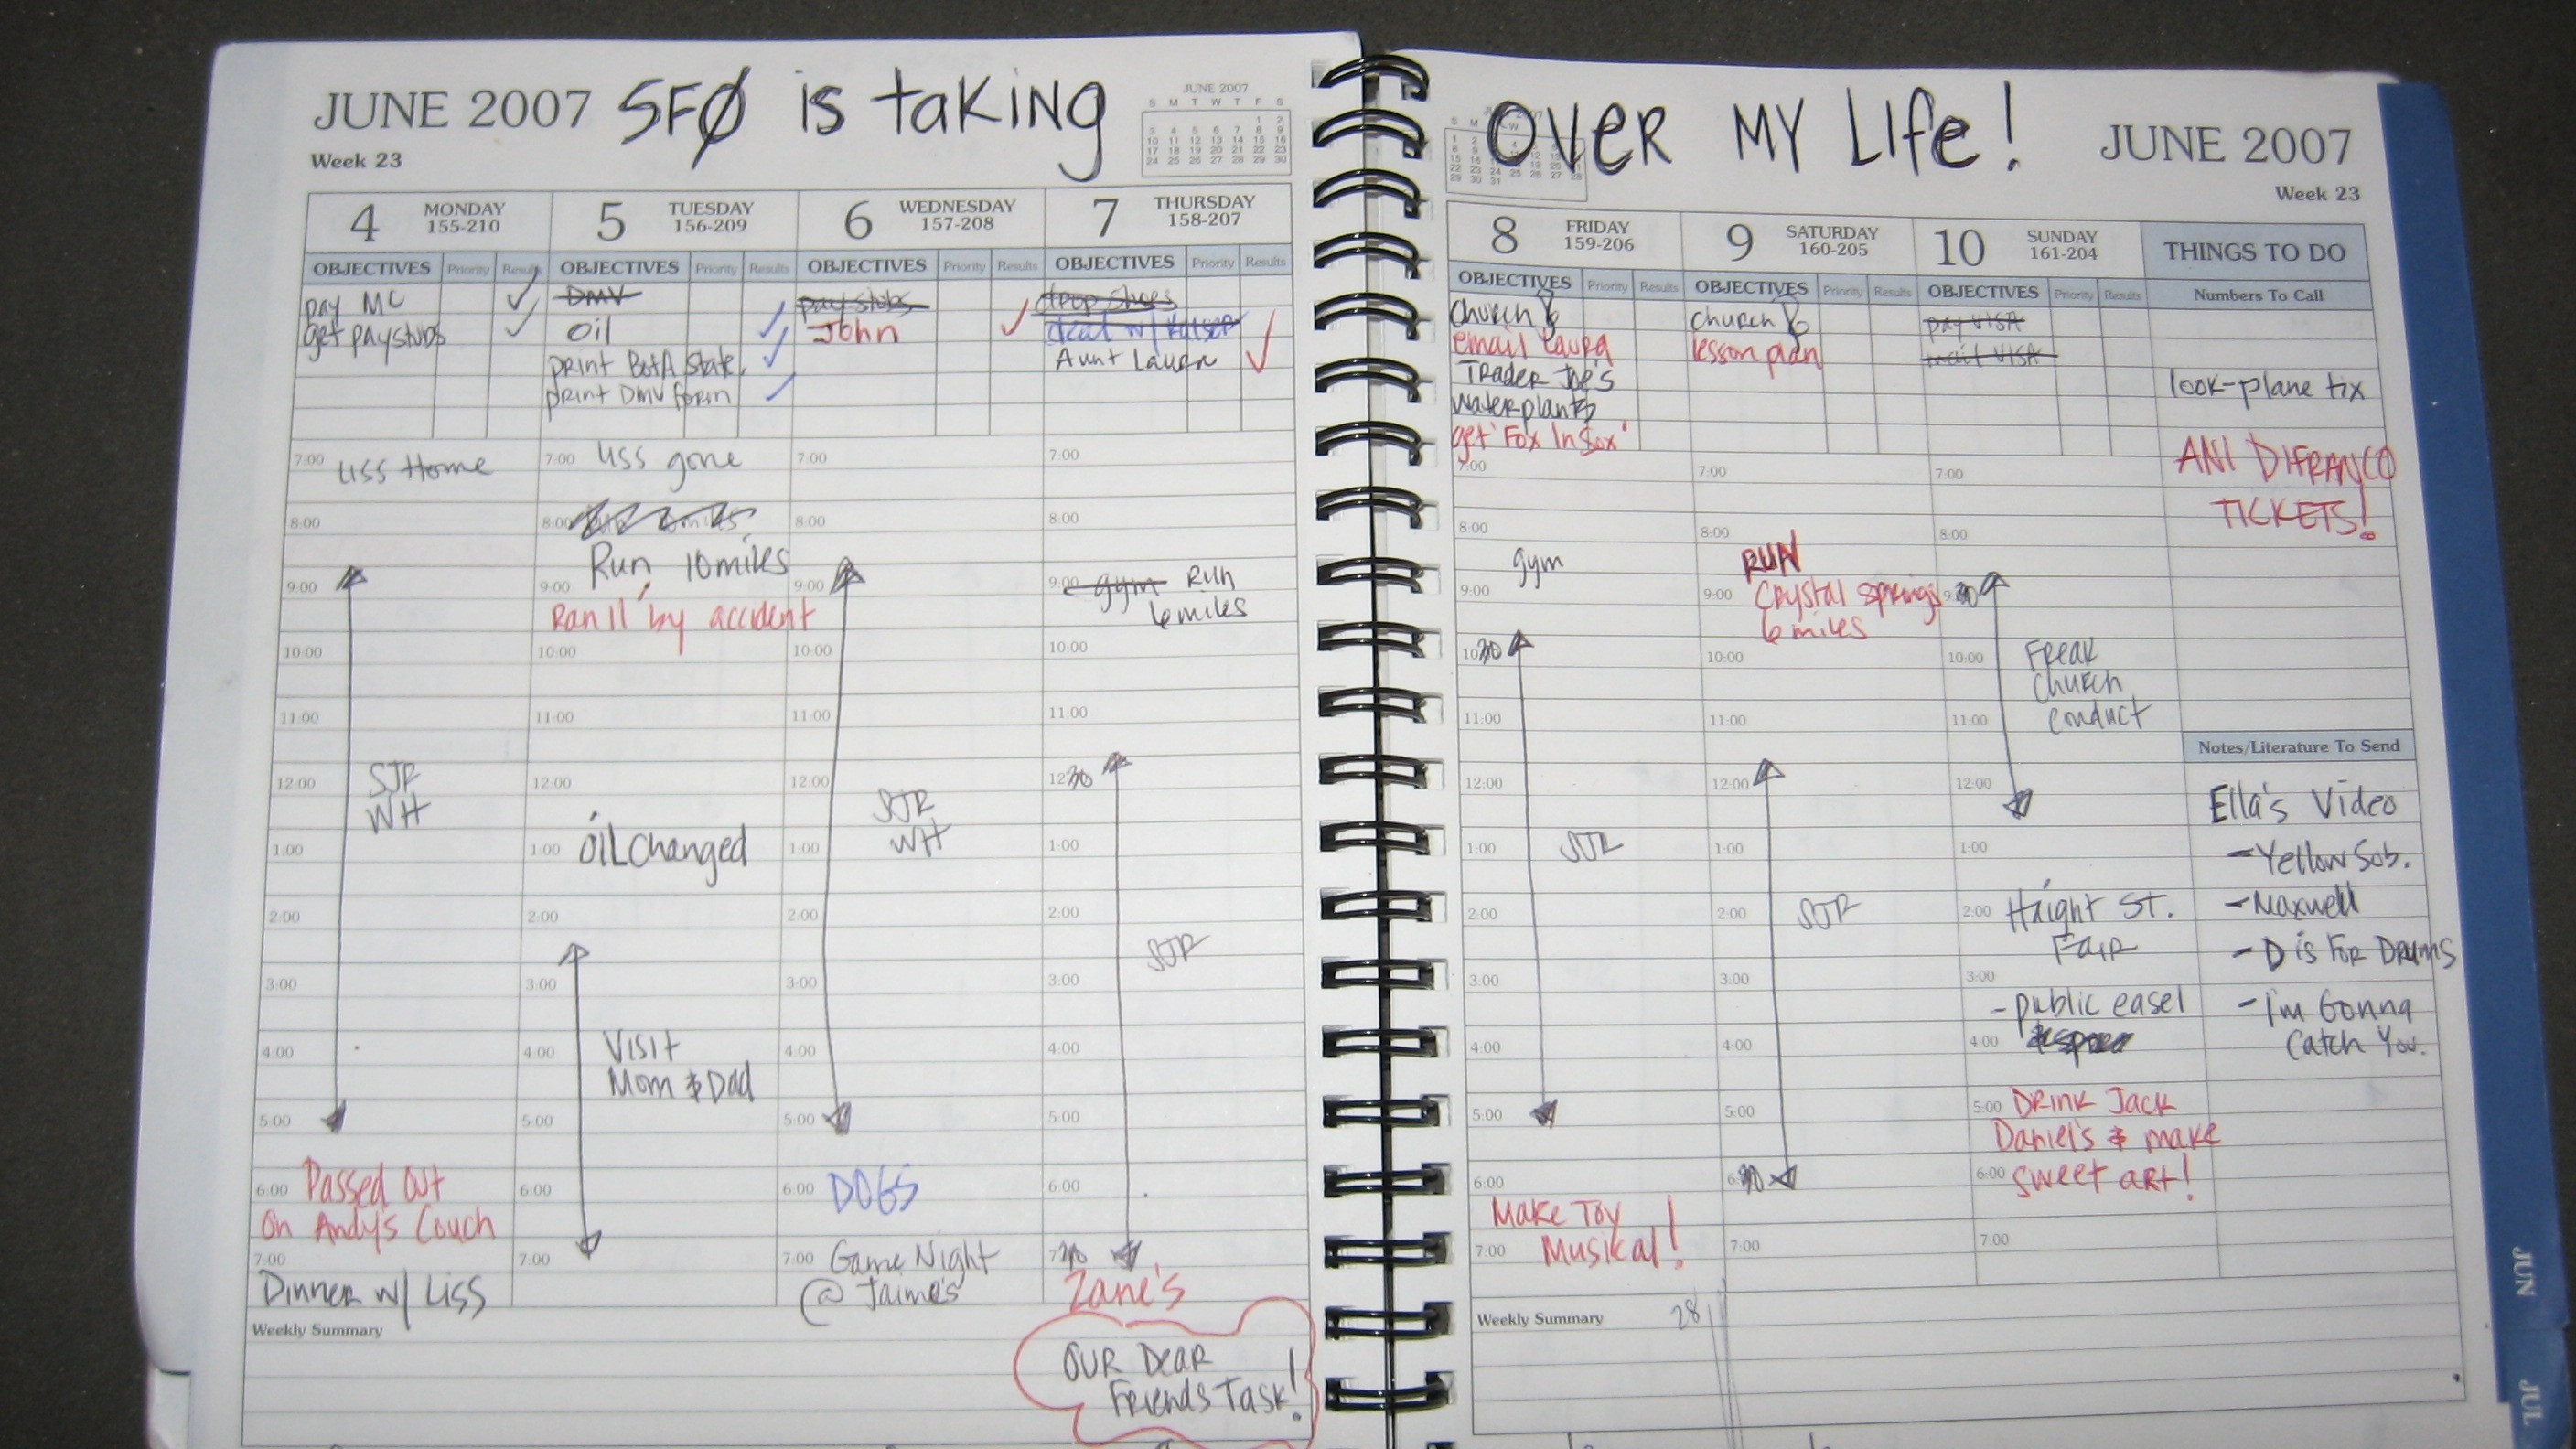 JUNE 2007 SFØ is taking
Week 23
JUNE 2007
S M T W T F S
1 2
3 4 5 6 7 8 9
10 11 12 13 14 15 16
17 18 19 20 21 22 23
24 25 26 27 28 29 30
4 MONDAY
155-210
OBJECTIVES Priority Results
pay MC
get paystubs
7:00 Liss Home
8:00
9:00
10:00
11:00
12:00
SJR
WH
1:00
2:00
3:00
4:00
5:00
6:00 Passed out
on Andy's Couch
7:00
Dinner w/ Liss
5 TUESDAY
156-209
OBJECTIVES Priority Results
DMV
oil
print BofA State.
print DMV form
7:00 Liss gone
8:00 miles
Run 10 miles
9:00
Ran 11 by accident
10:00
11:00
12:00
1:00 Oil Changed
2:00
3:00
4:00 Visit
Mom & Dad
5:00
6:00
7:00
6 WEDNESDAY
157-208
OBJECTIVES Priority Results
pay stubs
John
7:00
8:00
9:00
10:00
11:00
12:00
SJR
WH
1:00
2:00
3:00
4:00
5:00
6:00 DOGS
7:00 Game Night
@ Jaime's
7 THURSDAY
158-207
OBJECTIVES Priority Results
drop shoes
deal w/ Kaiser
Aunt Laura
7:00
8:00
9:00 gym Run
6 miles
10:00
11:00
12:30
1:00
2:00
SJR
3:00
4:00
5:00
6:00
7:30
Zane's
Weekly Summary
OUR Dear
Friends Task!
OVER MY Life! JUNE 2007
Week 23
8 FRIDAY
159-206
OBJECTIVES Priority Results
Church
email Laura
Trader Joe's
Water plants
get 'Fox In Sox'
7:00
8:00
gym
9:00
10:30
11:00
12:00
1:00 SJR
2:00
3:00
4:00
5:00
6:00
Make Toy
7:00 Musical!
9 SATURDAY
160-205
OBJECTIVES Priority Results
church
lesson plan
7:00
8:00
RUN
9:00 Crystal Springs
6 miles
10:00
11:00
12:00
1:00
2:00 SJR
3:00
4:00
5:00
6:30
7:00
10 SUNDAY
161-204
OBJECTIVES Priority Results
pay VISA
mail VISA
7:00
8:00
9:30
10:00 Freak
Church
Conduct
11:00
12:00
1:00
2:00 Haight St.
Fair
3:00
- public easel
4:00
5:00 Drink Jack
Daniel's & make
6:00 sweet art!
7:00
THINGS TO DO
Numbers To Call
look-plane tix
ANI DIFRANCO
TICKETS!
Notes/Literature To Send
Ella's Video
- Yellow Sub.
- Maxwell
- D is For Drums
- I'm Gonna
Catch You.
Weekly Summary 28
JUN
JUL